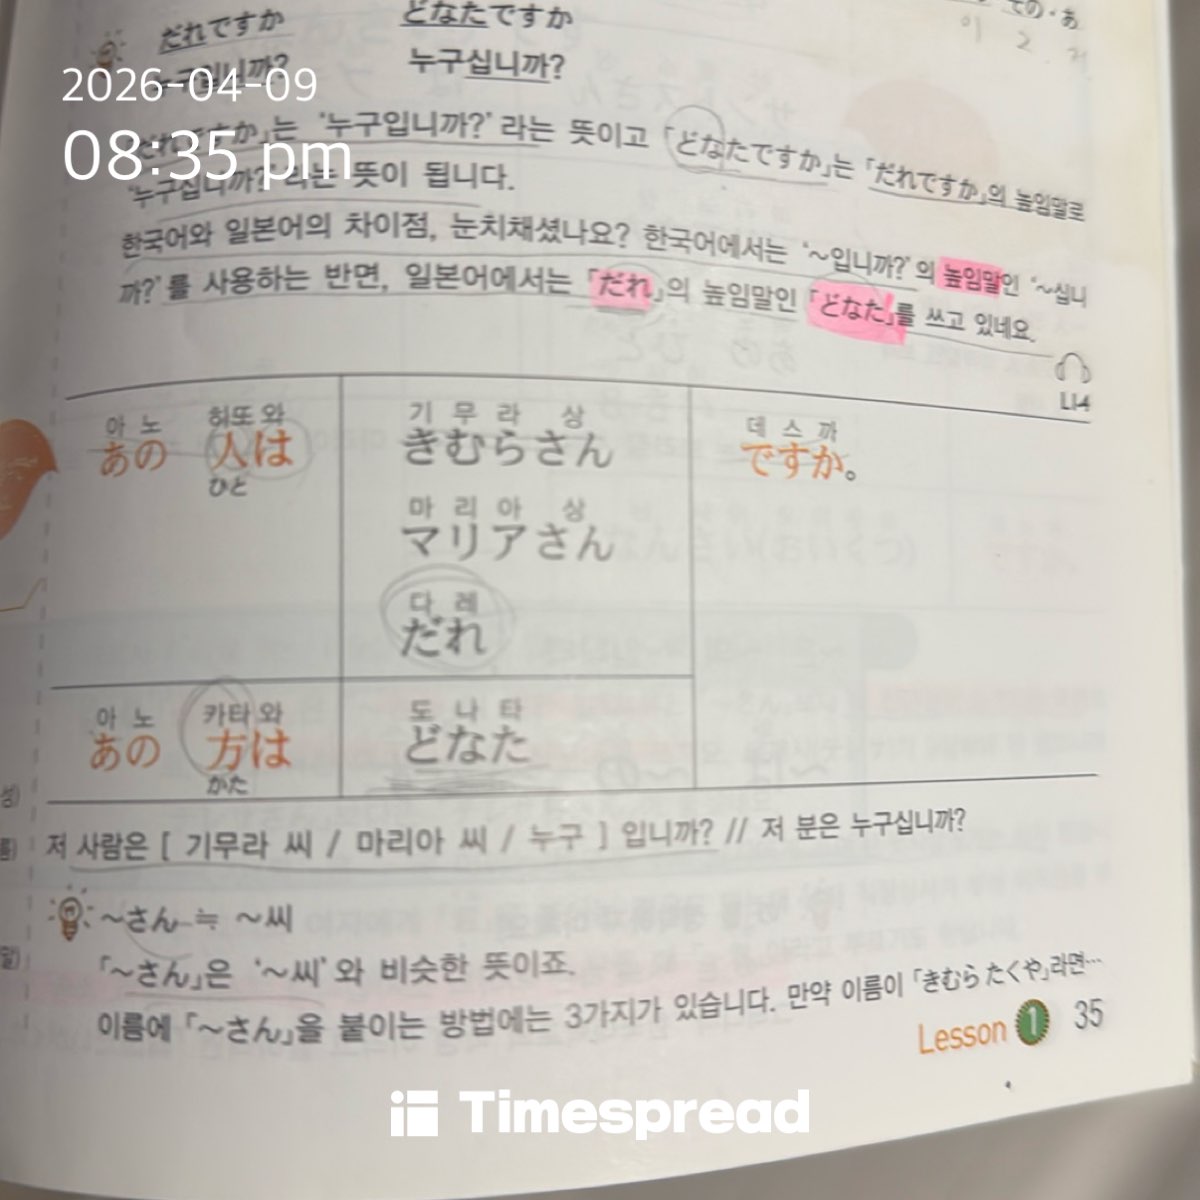 だれですか どなたですか
ての・あ
이 2 저
누구입니까? 누구십니까?
2026-04-09
08:35 pm
「だれですか」는 '누구입니까?' 라는 뜻이고 「どなたですか」는 「だれですか」의 높임말로
'누구십니까?'라는 뜻이 됩니다.
한국어와 일본어의 차이점, 눈치채셨나요? 한국어에서는 '~입니까?'의 높임말인 '~십니
까?'를 사용하는 반면, 일본어에서는 「だれ」의 높임말인 「どなた」를 쓰고 있네요.
L14
아 노 히또 와 기 무 라 상 데 스 까
あの 人は きむらさん ですか。
ひと
마 리 아 상
マリアさん
다 레
だれ
아 노 카타 와 도 나 타
あの 方は どなた
かた
저 사람은 [ 기무라 씨 / 마리아 씨 / 누구 ] 입니까? // 저 분은 누구십니까?
~さん ≒ ~씨
「~さん」은 '~씨'와 비슷한 뜻이죠.
이름에 「~さん」을 붙이는 방법에는 3가지가 있습니다. 만약 이름이 「きむら たくや」라면…
Lesson 1 35
Timespread